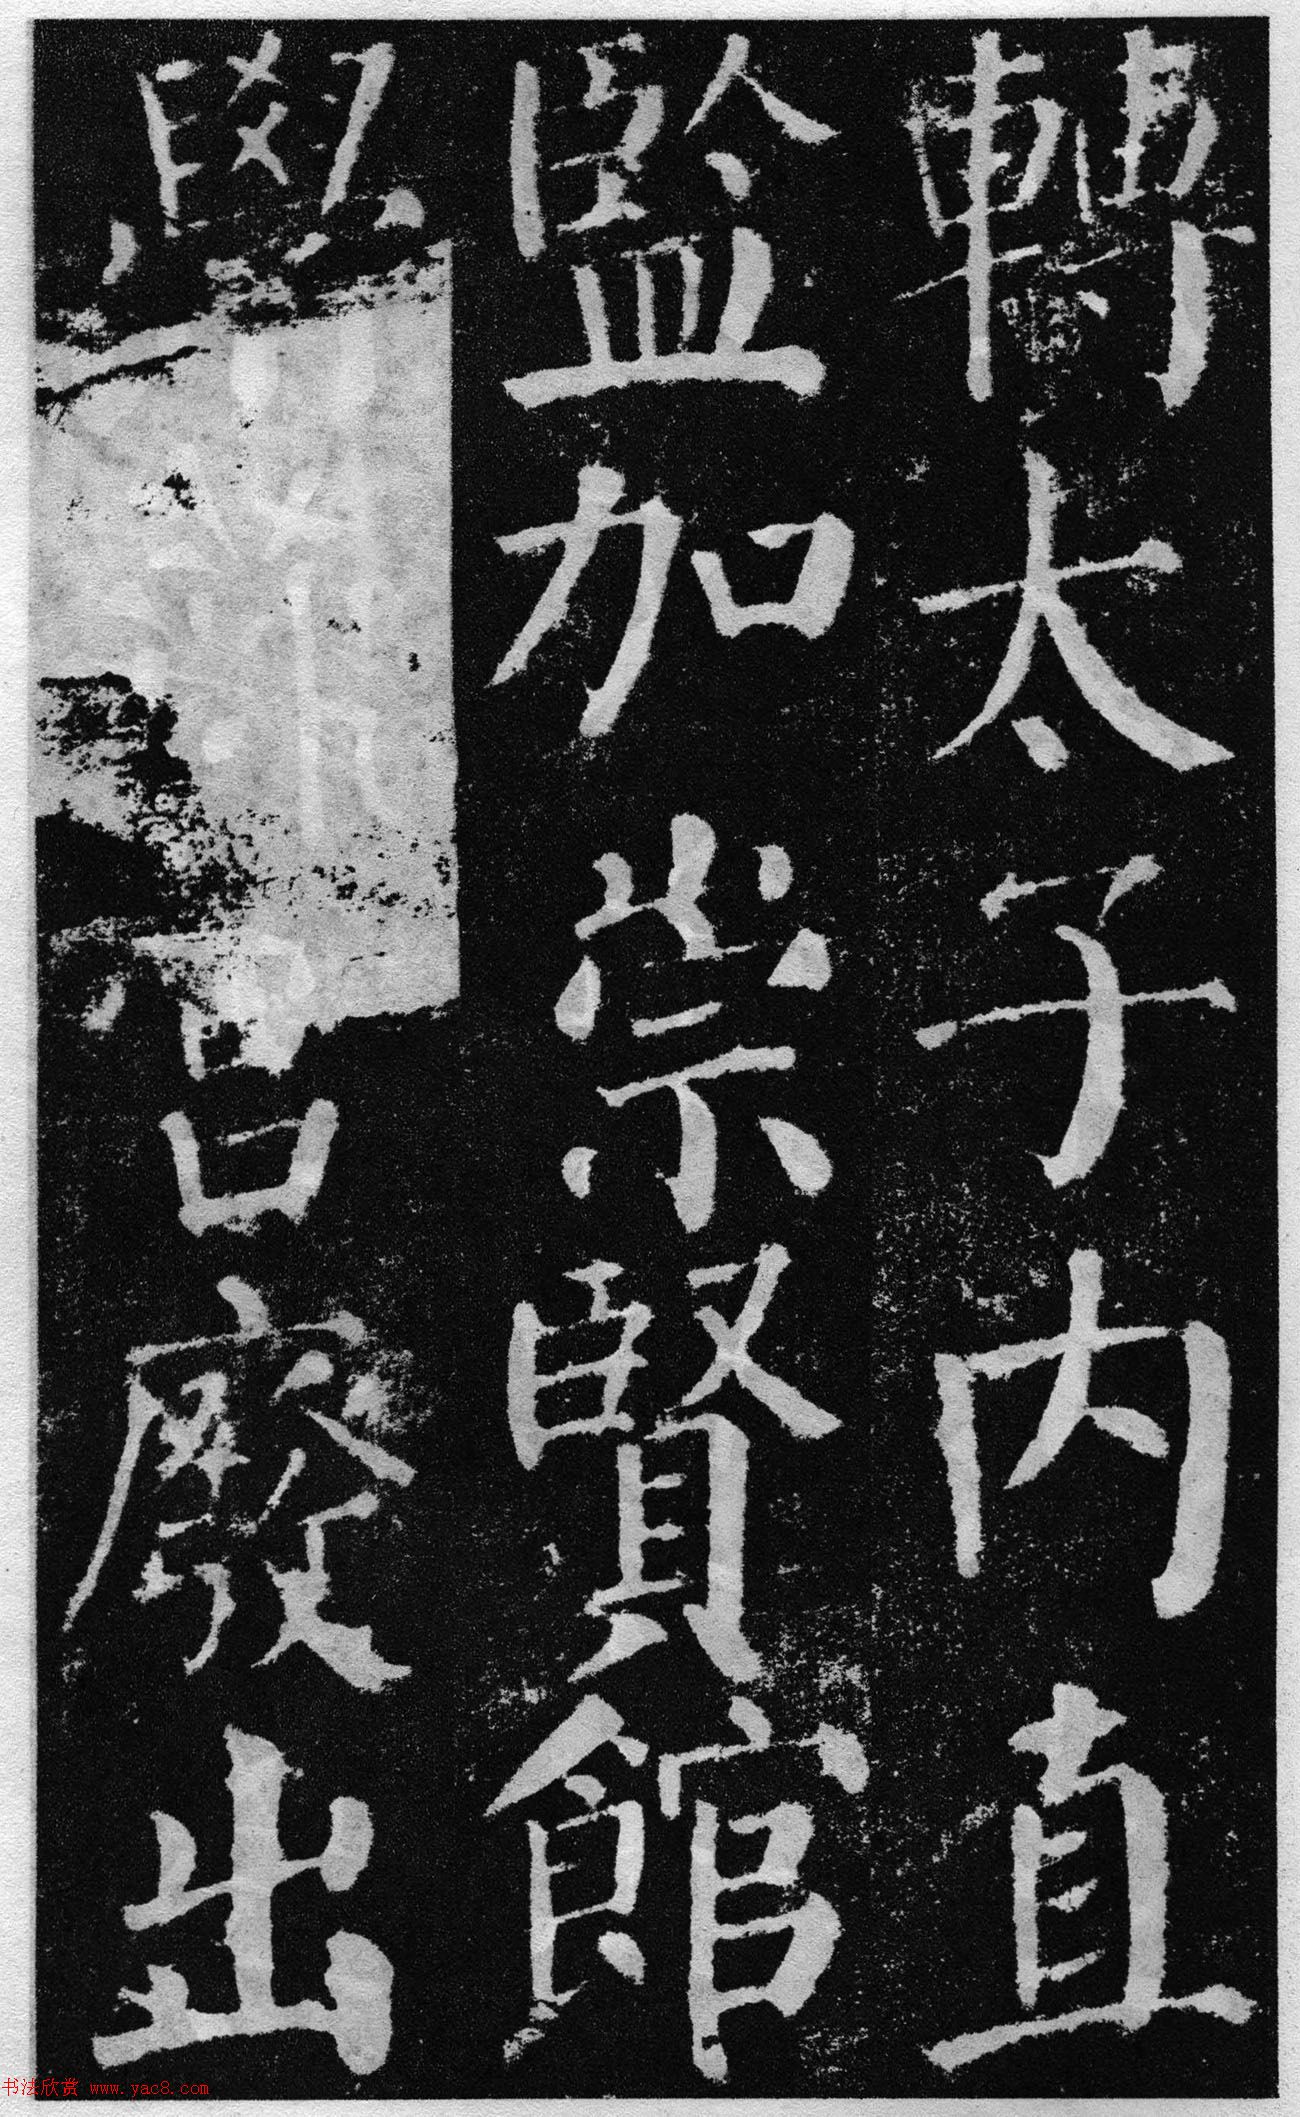 轉太子内直
監加崇賢館
學宮廢出
书法欣赏 www.yac8.com